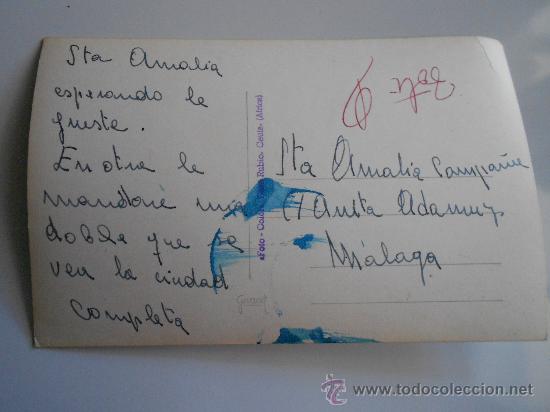 Sta Amalia
esperando le
guste.
En otra le
mandaré una
doble que se
vea la ciudad
completa
Foto - Rubio. Ceuta- (Africa)
Sta Amalia Campaña
C/ Anita Adamuz
Málaga
TODOCOLECCION
www.todocoleccion.net